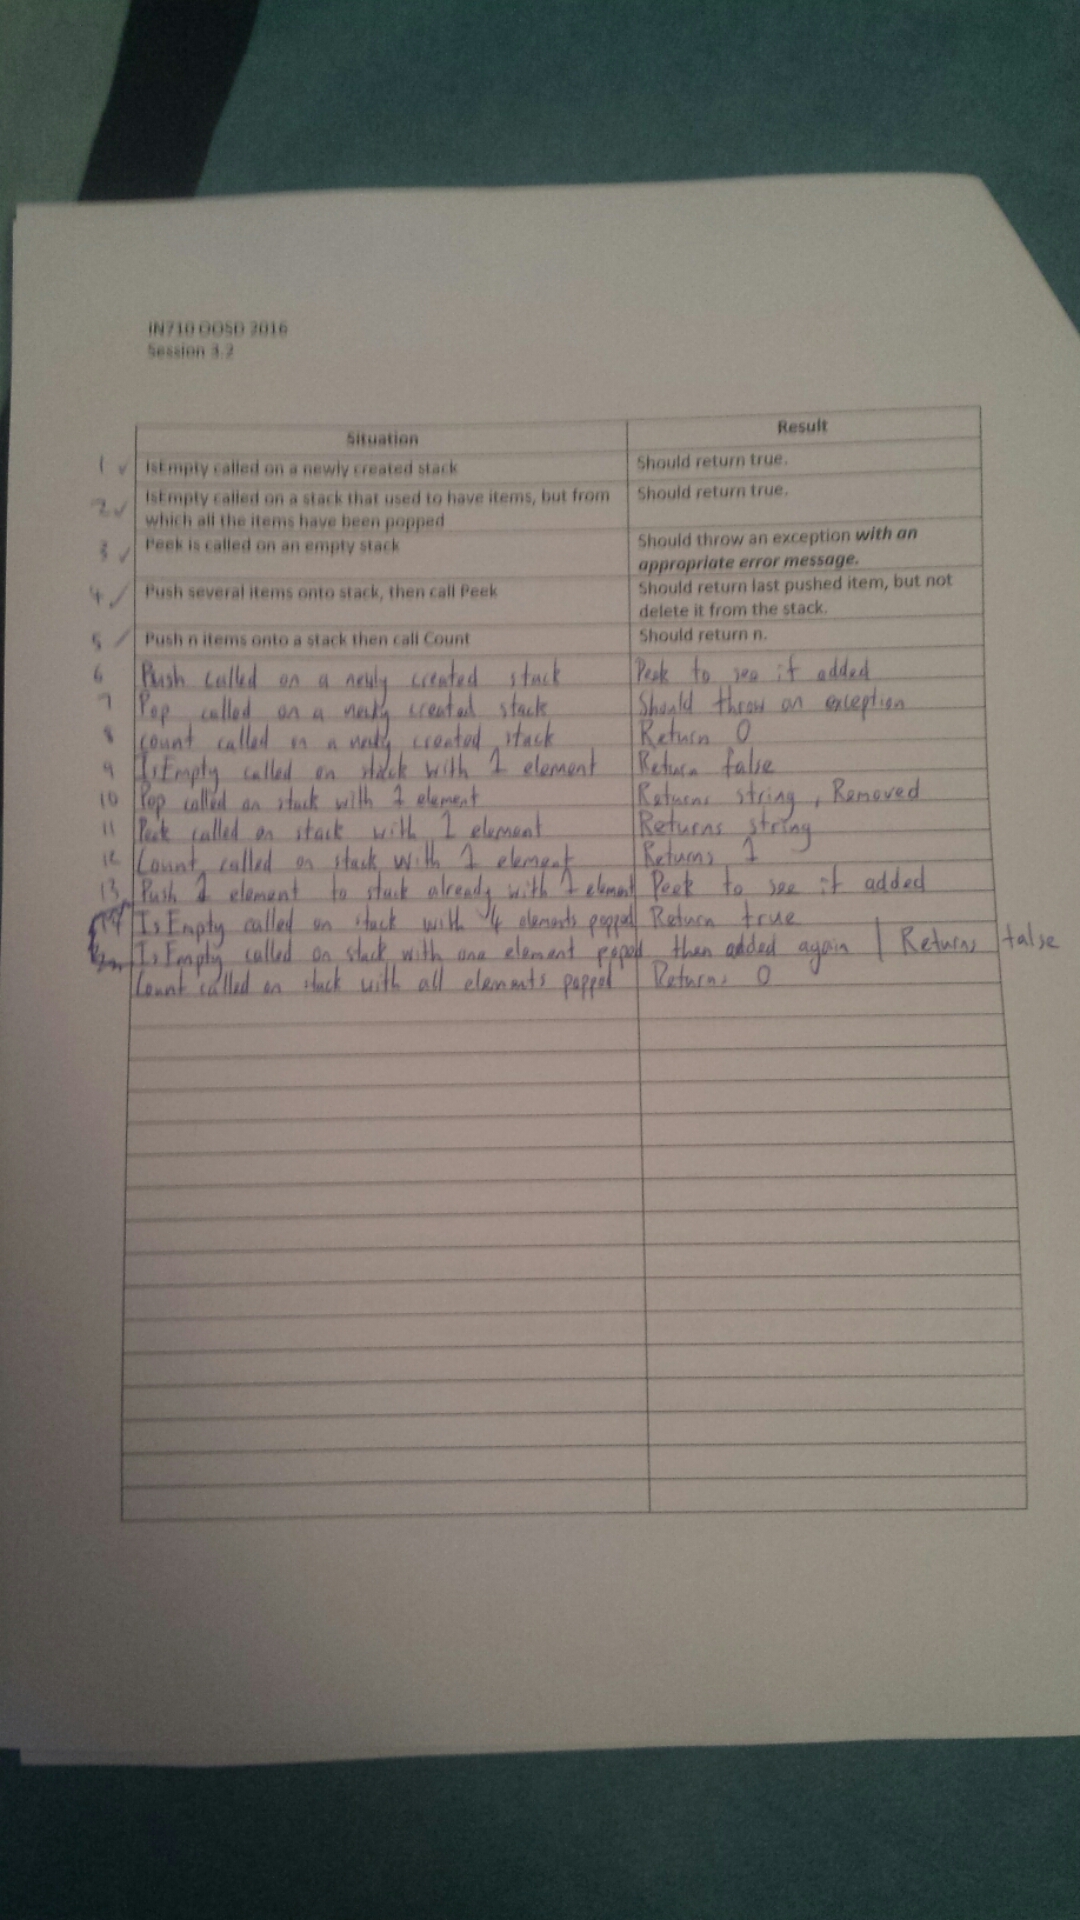 IN710 OOSD 2016
Session 3.2
Situation Result
1 ✓ IsEmpty called on a newly created stack Should return true.
2 ✓ IsEmpty called on a stack that used to have items, but from Should return true.
which all the items have been popped
3 ✓ Peek is called on an empty stack Should throw an exception with an
appropriate error message.
4 ✓ Push several items onto stack, then call Peek Should return last pushed item, but not
delete it from the stack.
5 ✓ Push n items onto a stack then call Count Should return n.
6 Push called on a newly created stack Peek to see if added
7 Pop called on a newly created stack Should throw an exception
8 Count called on a newly created stack Return 0
9 IsEmpty called on stack with 1 element Return false
10 Pop called on stack with 1 element Returns string, Removed
11 Peek called on stack with 1 element Returns string
12 Count called on stack with 1 element Returns 1
13 Push 1 element to stack already with 1 element Peek to see if added
14 IsEmpty called on stack with 4 elements popped Return true
IsEmpty called on stack with one element popped then added again | Returns false
Count called on stack with all elements popped Returns 0